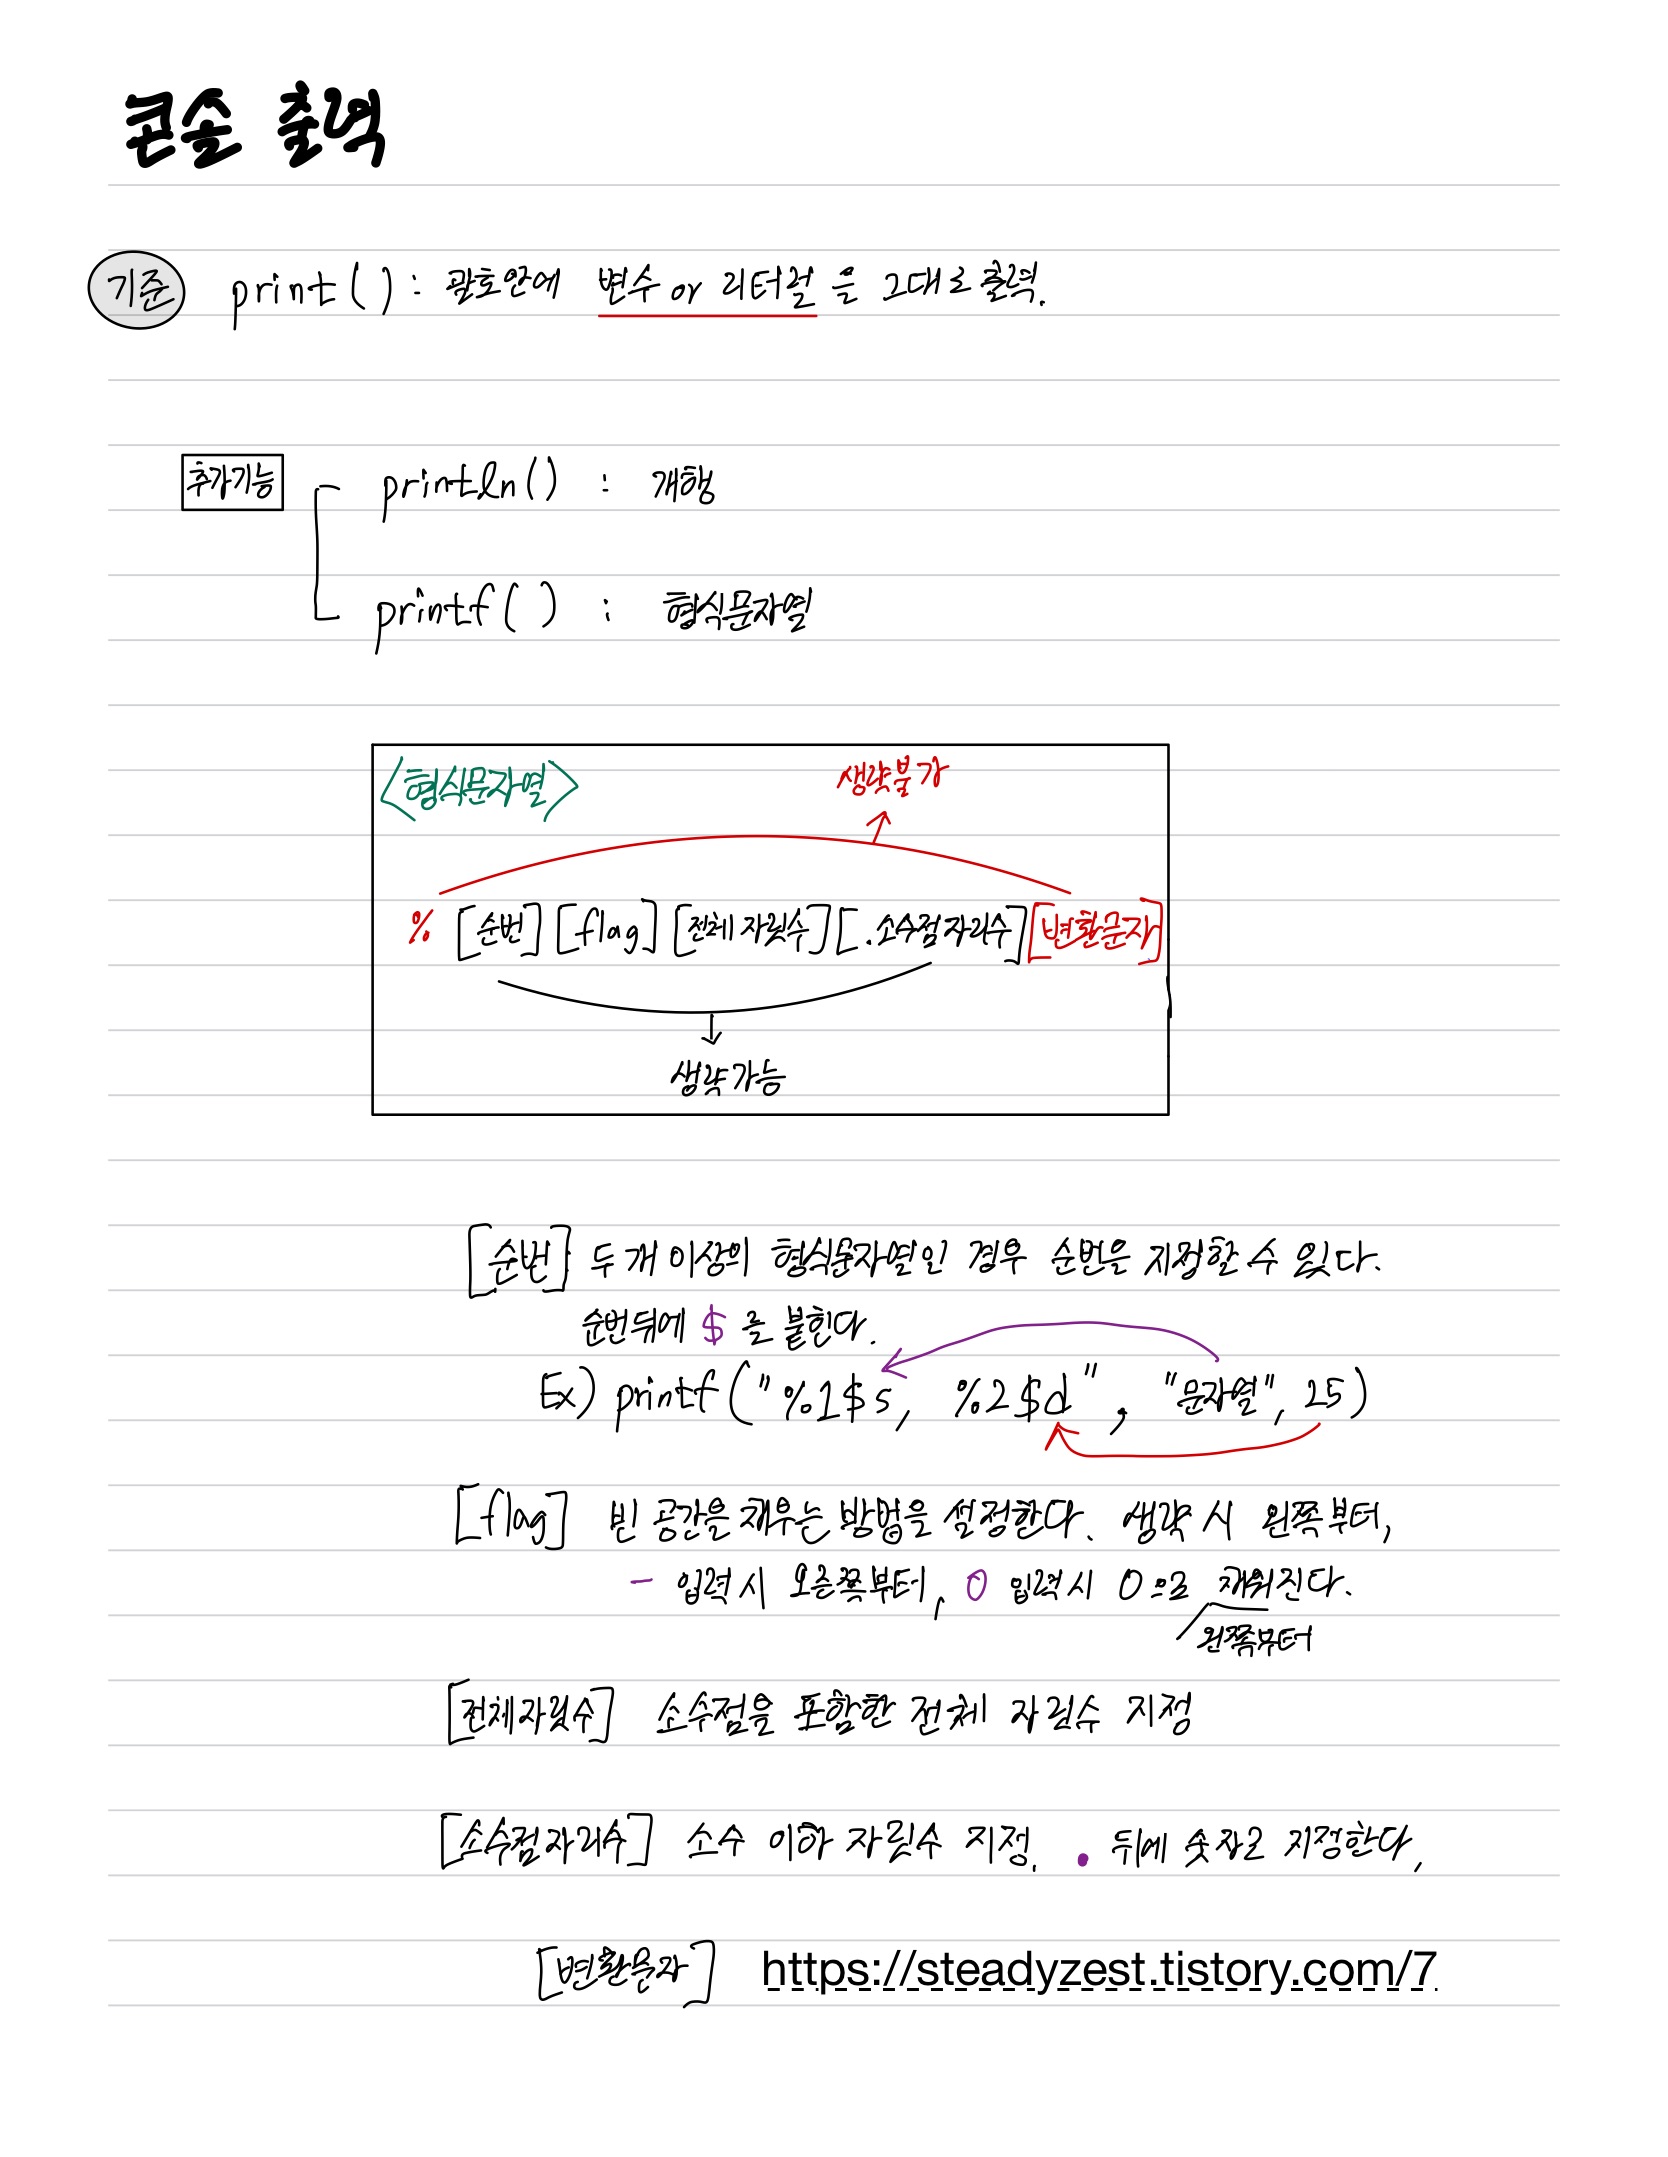 콘솔 출력
기준 print() : 괄호안에 변수 or 리터럴 을 그대로 출력.
추가기능 println() : 개행
printf( ) : 형식문자열
<형식문자열> 생략불가
% [순번] [flag] [전체 자릿수] [.소수점자리수] [변환문자]
생략가능
[순번] 두 개 이상의 형식문자열인 경우 순번을 지정할 수 있다.
순번뒤에 $ 를 붙힌다.
Ex) printf("%1$s, %2$d", "문자열", 25)
[flag] 빈 공간을 채우는 방법을 설정한다. 생략 시 왼쪽부터,
- 입력시 오른쪽부터, 0 입력시 0으로 채워진다.
왼쪽부터
[전체자릿수] 소수점을 포함한 전체 자릿수 지정
[소수점자리수] 소수 이하 자릿수 지정. . 뒤에 숫자로 지정한다.
[변환문자] https://steadyzest.tistory.com/7